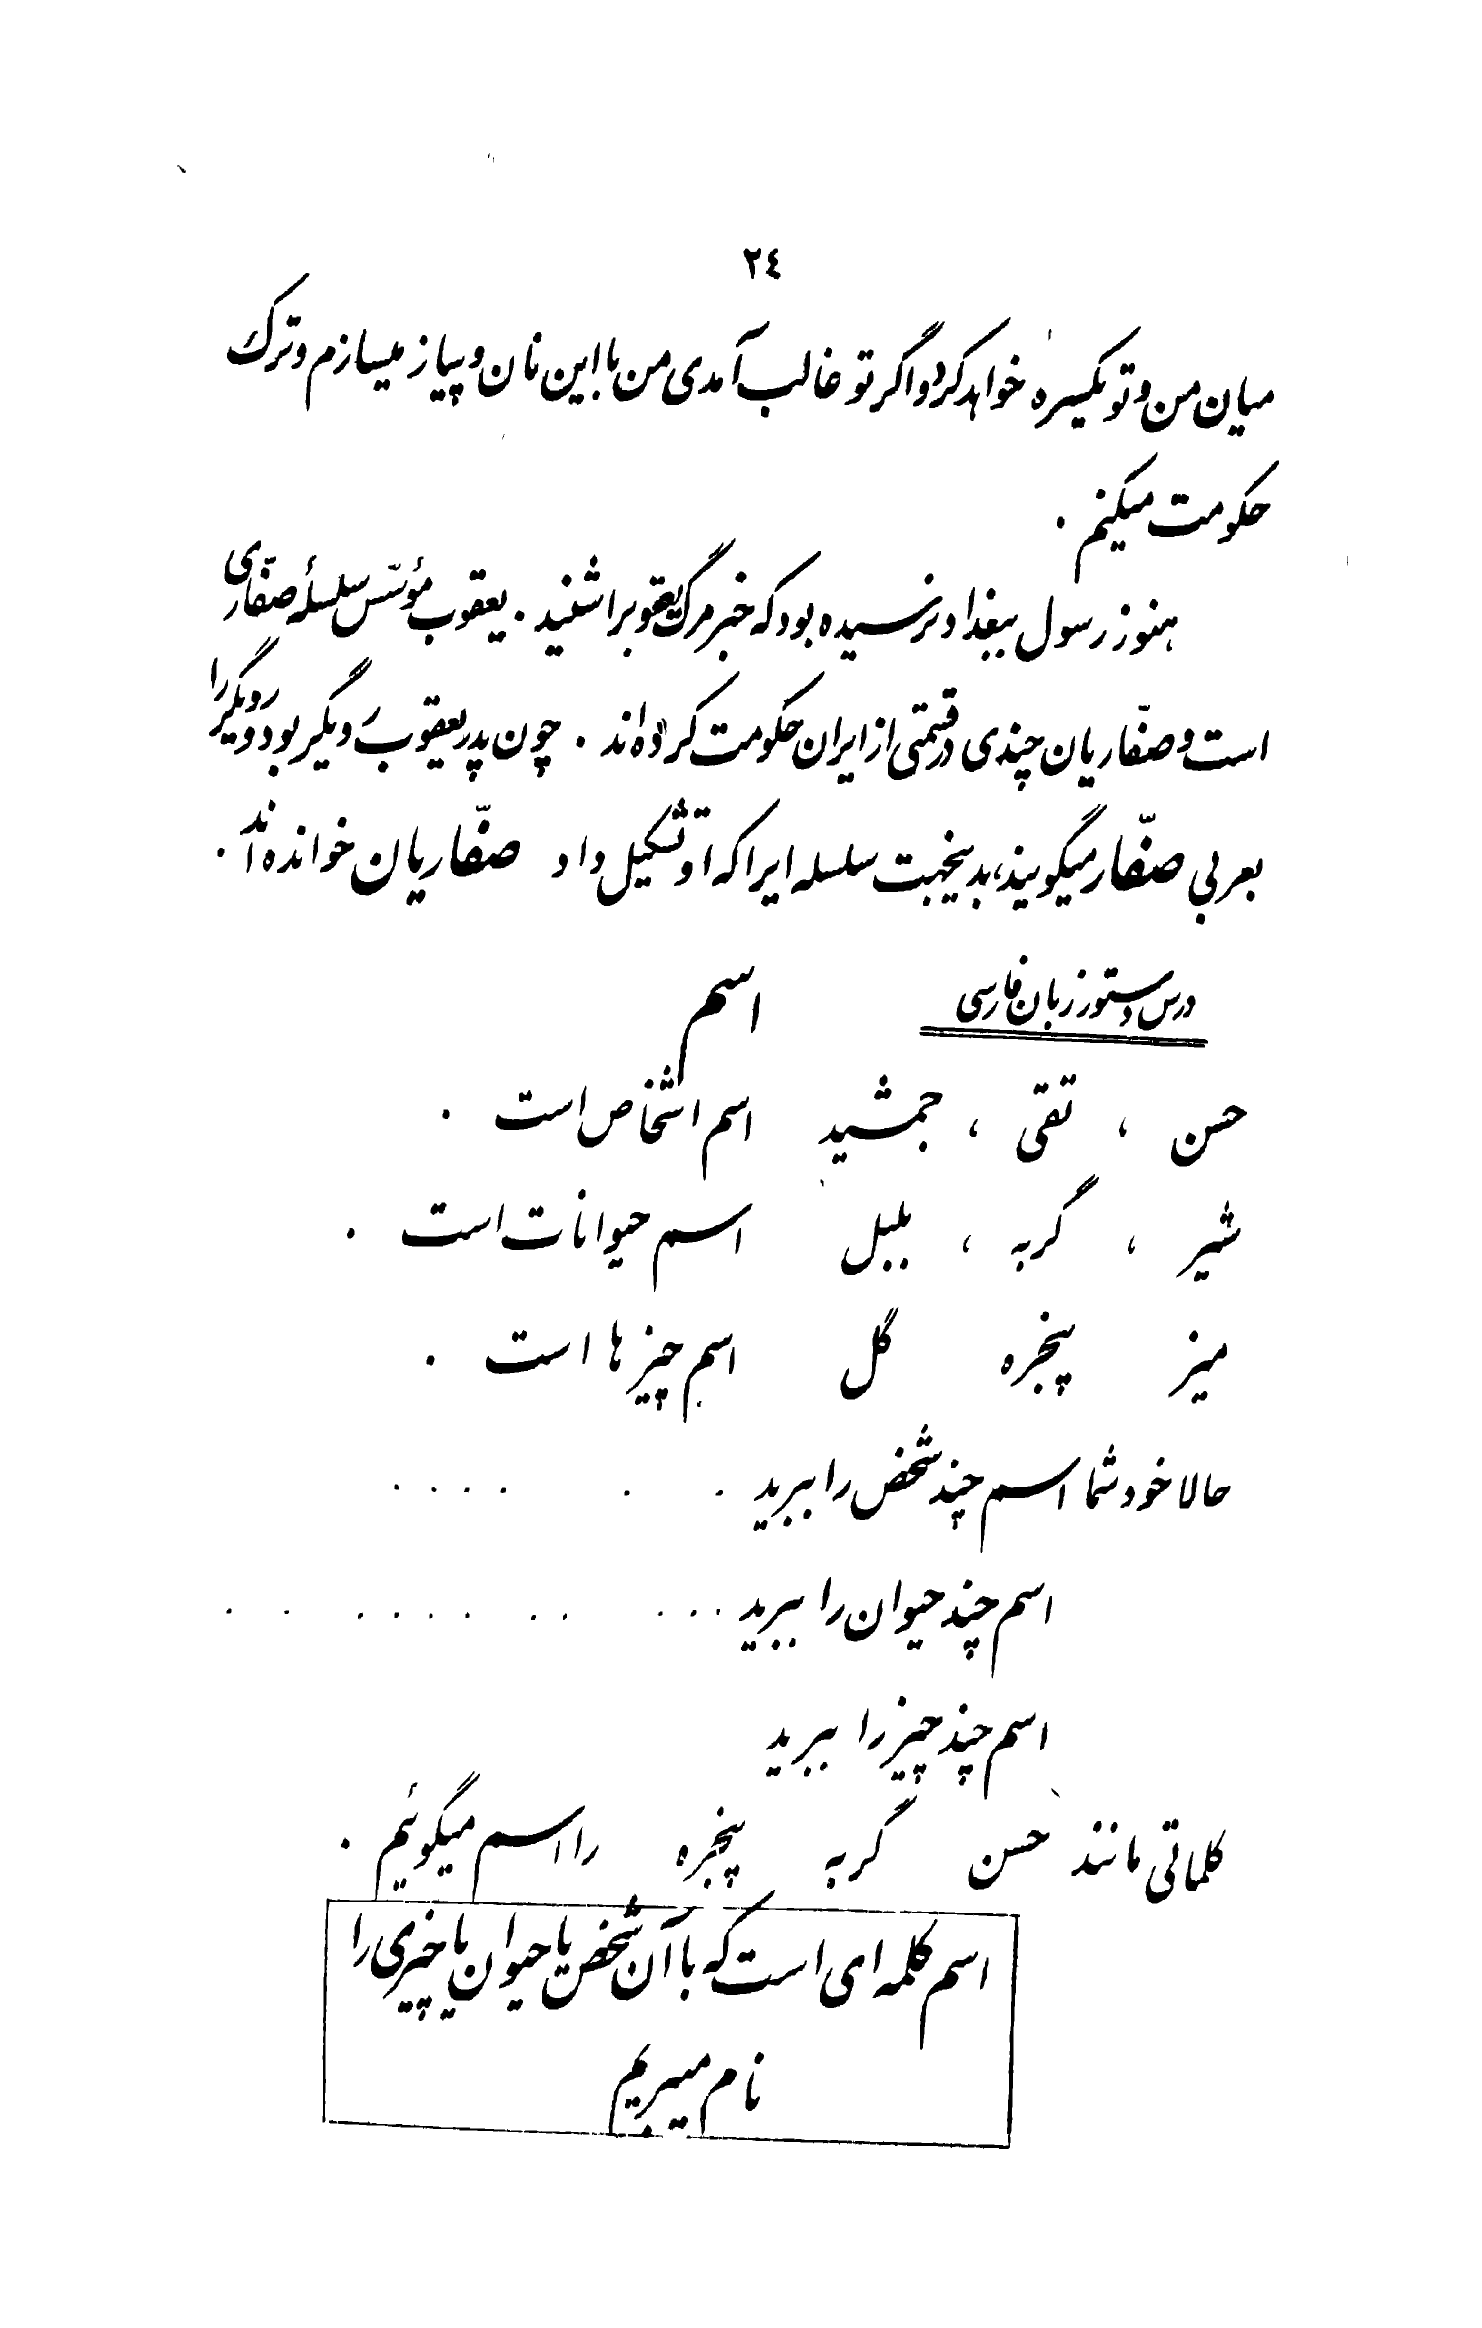 ۲٤
میان من و تو یکسره خواهد کرد و اگر تو غالب آمدی من با این نان و پیاز میسازم و ترک
حکومت میکنم .
هنوز رسول ببغداد نرسیده بود که خبر مرگ یعقوب را شنید . یعقوب مؤسّس سلسلهٔ صفّاری
است و صفّاریان چندی در قسمتی از ایران حکومت کرده‌اند . چون پدر یعقوب رویگر بود و رویگر را
بعربی صفّار میگویند، بدینجهت سلسله ایرا که او تشکیل داد صفّاریان خوانده‌اند .
درس دستور زبان فارسی اسم
حسن ، تقی ، جمشید اسم اشخاص است .
شیر ، گربه ، بلبل اسم حیوانات است .
میز پنجره گل اسم چیزها است .
حالا خود شما اسم چند شخص را ببرید . . . . . .
اسم چند حیوان را ببرید . . . . . . . . . . .
اسم چند چیز را ببرید
کلماتی مانند حسن گربه پنجره را اسم میگوئیم .
اسم کلمه ای است که با آن شخص یا حیوان یا چیزی را
نام میبریم